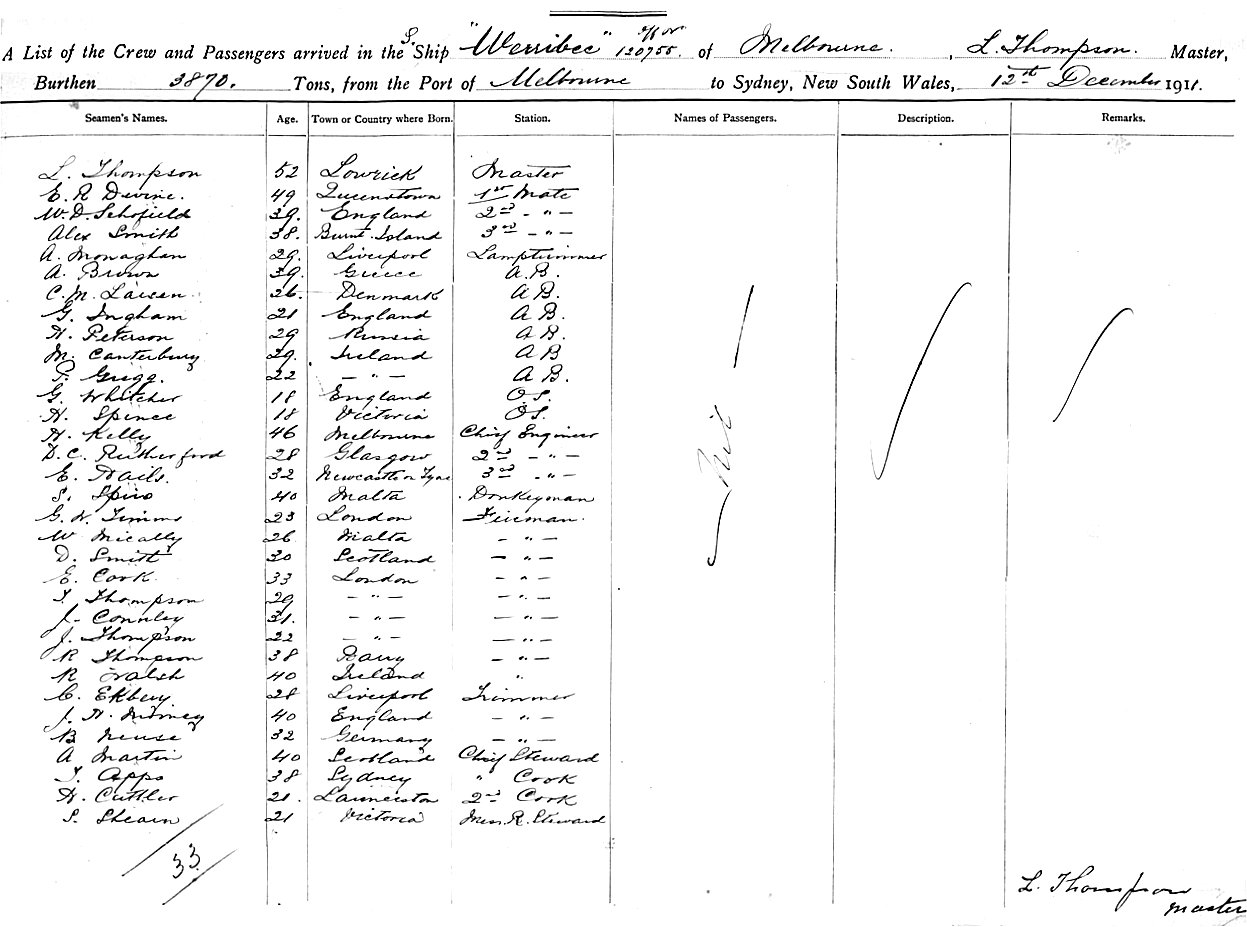 A List of the Crew and Passengers arrived in the S. Ship "Werribee" 120755 of Melbourne. , L. Thompson. Master,
Burthen 3870. Tons, from the Port of Melbourne to Sydney, New South Wales, 12th December 1911.
Seamen's Names. Age. Town or Country where Born. Station. Names of Passengers. Description. Remarks.
L. Thompson 52 Lowick Master
E. R Devine. 49 Queenstown 1st Mate
W. D. Schofield 39. England 2nd - " -
Alex Smith 38. Burnt Island 3rd - " -
A. Monaghan 29. Liverpool Lamptrimmer
A. Brown 39. Greece A.B.
C. M. Larsen 26. Denmark A B.
G. Ingham 21 England A B.
H. Peterson 29 Russia A B.
M. Canterbury 29. Ireland A B
P. Grigg. 22 - " - A B.
G. Whitcher 18 England O.S.
H. Spence 18 Victoria O.S.
H. Kelly 46 Melbourne Chief Engineer
D. C. Rutherford 28 Glasgow 2nd - " -
E. Hails. 32 Newcastle on Tyne 3rd - " -
S. Spiro 40 Malta Donkeyman
G. W. Timms 23 London Fireman.
W Mically 26 Malta - " -
D. Smith 30 Scotland - " -
E. Cork. 33 London - " -
T. Thompson 29 - " - - " -
J. Connley 31. - " - - " -
J. Thompson 22 - " - - " -
R Thompson 38 Barry - " -
R Walsh 40 Ireland "
C. Ekbery 28 Liverpool Trimmer
J. H. 40 England - " -
B Neuse 32 Germany - " -
A Martin 40 Scotland Chief Steward
T. Apps 38 Sydney " Cook
H. Cuttler 21. Launceston 2nd Cook
S. Shearn 21 Victoria Mess. R. Steward
Nil
33
L. Thompson
Master